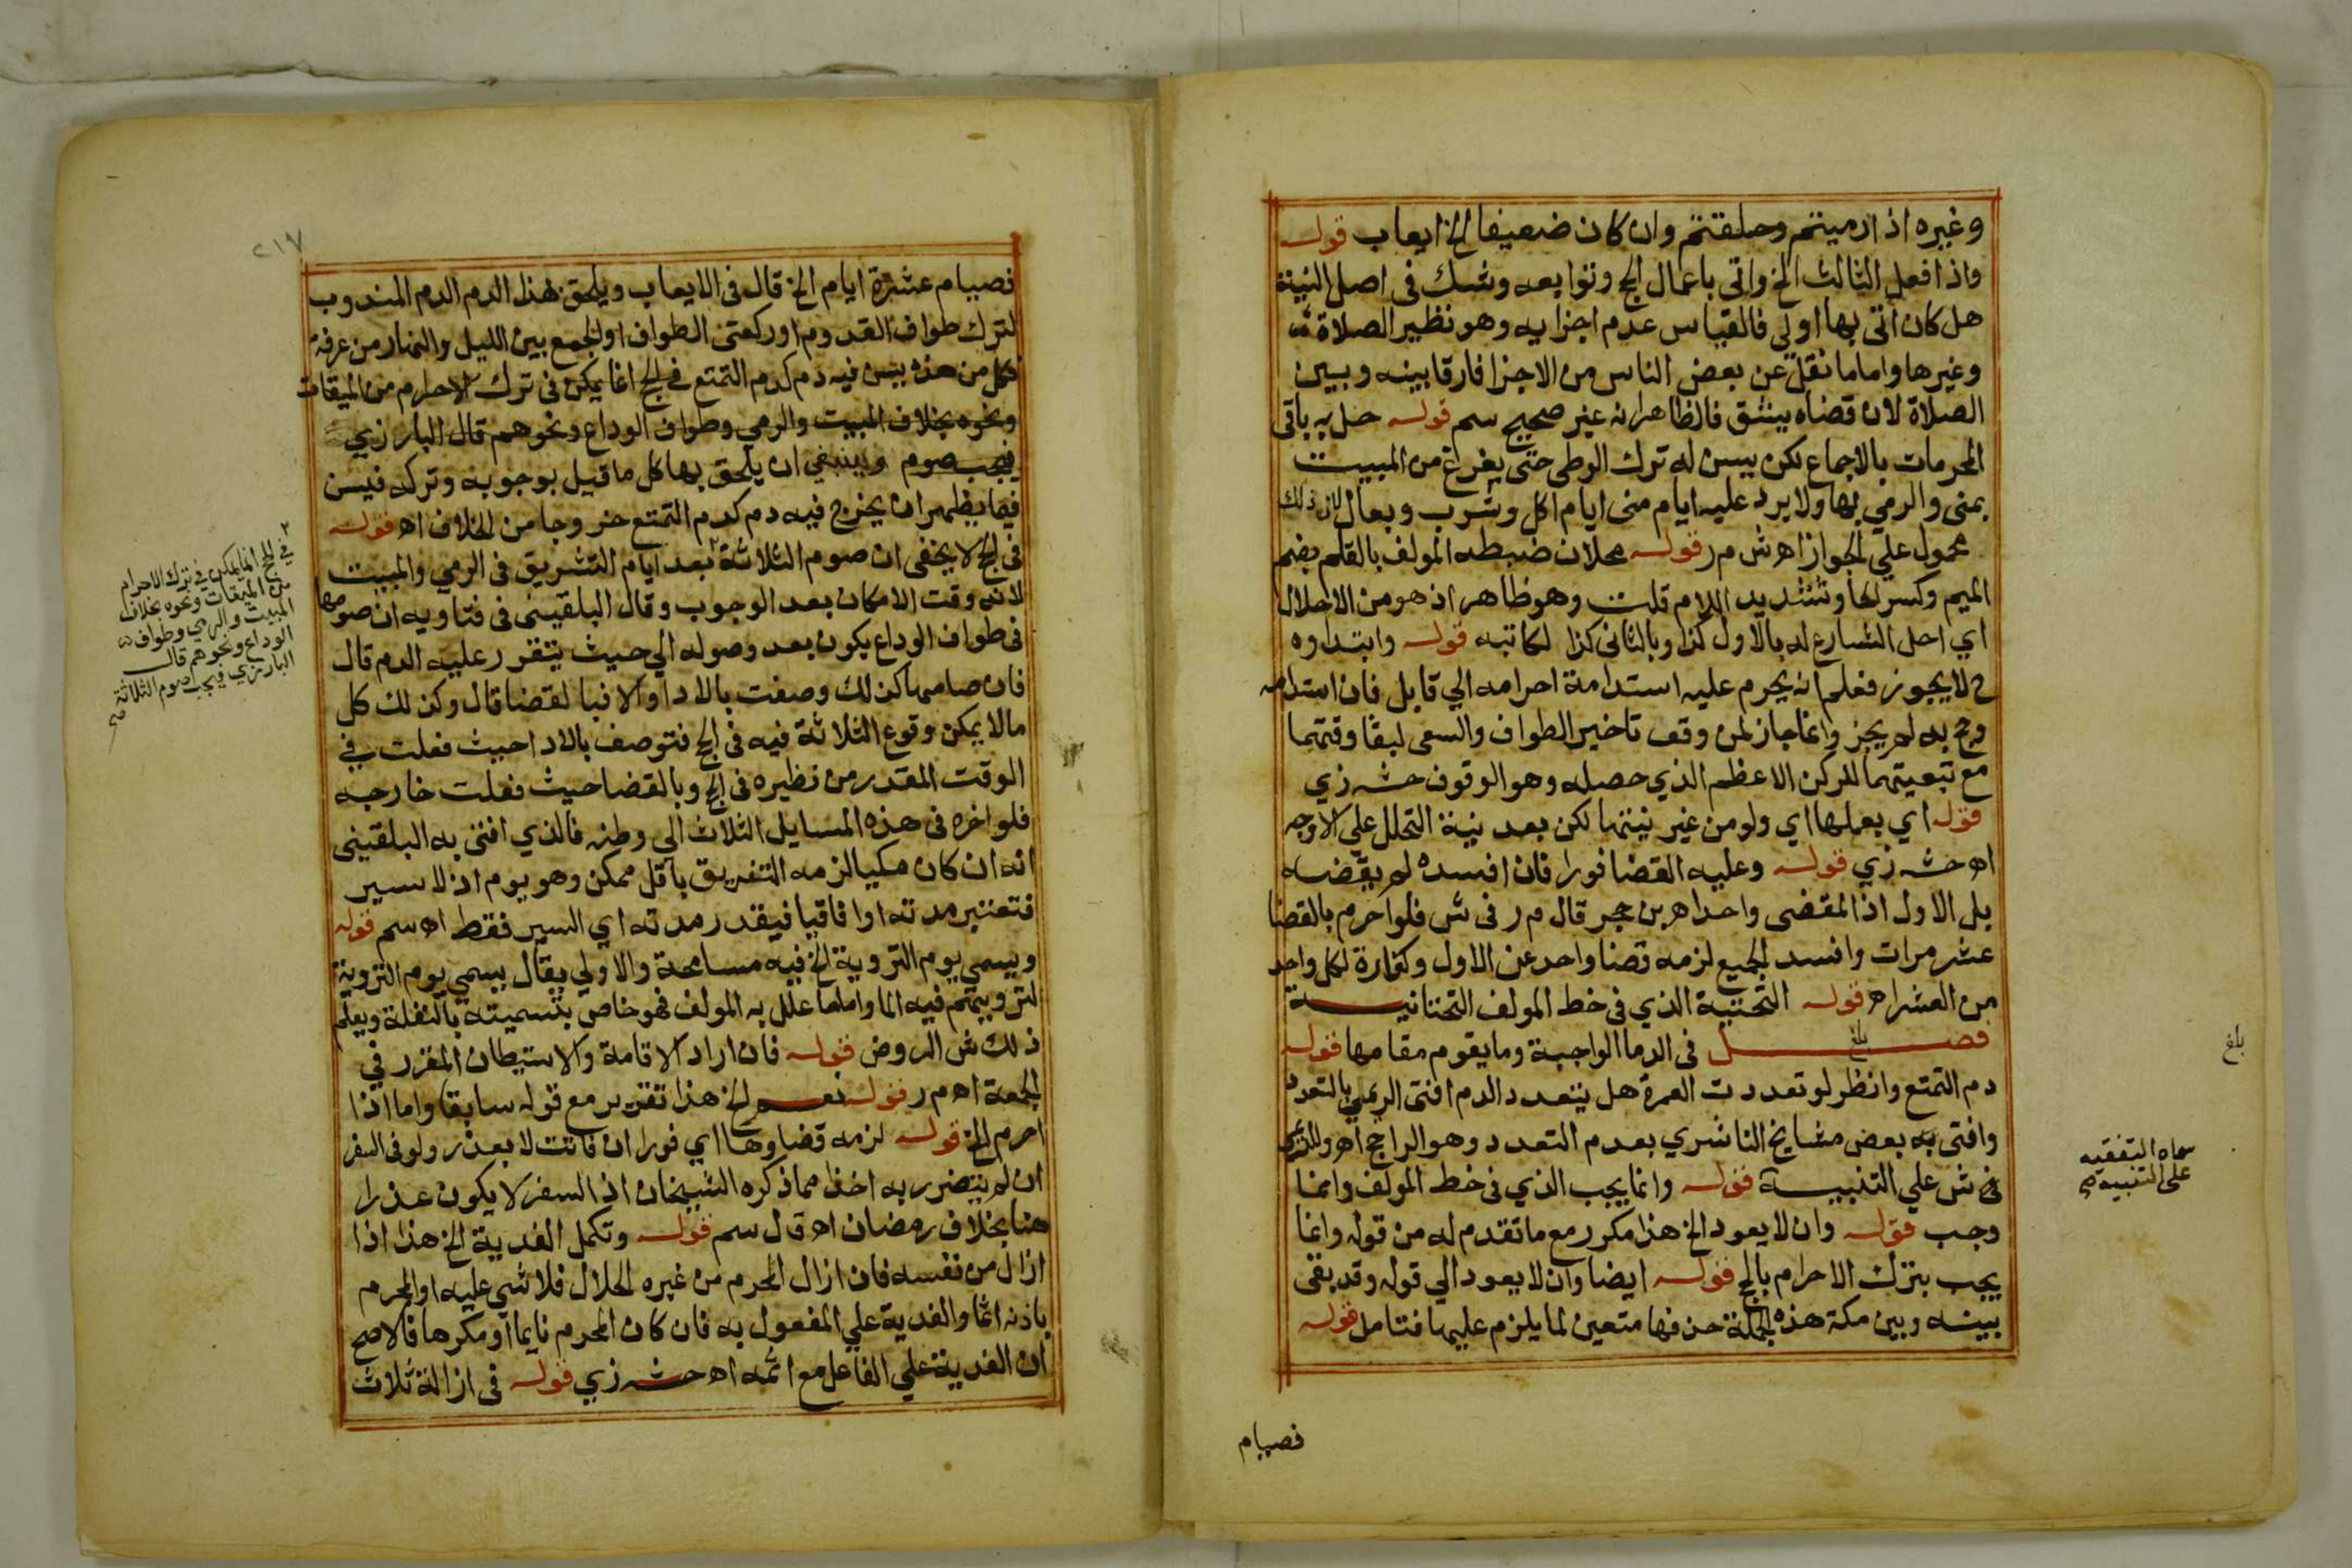 وغيره اذا رميتم وحلقتم وان كان ضعيفا الخ ايعاب قوله
واذا فعل الثالث الخ واتي باعمال الحج وتوابعه وشك في اصل النية
هل كان أتى بها اولي فالقياس عدم اجزايه وهو نظير الصلاة
وغيرها واما ما نقل عن بعض الناس من الاجزا فارقا بينه وبين
الصلاة لان قضاه يشق فالظاهر انه غير صحيح سم قوله حل به باقي
المحرمات بالاجماع لكن يسن له ترك الوطي حتى يفرغ من المبيت
بمنى والرمي بها ولا يرد عليه ايام منى ايام اكل وشرب وبعال لان ذلك
محمول علي الجواز اه ش م ر قوله محلان ضبطه المولف بالقلم بضم
الميم وكسر الحا وتشديد اللام قلت وهو ظاهر اذ هو من الاحلال
اي احل الشارع له بالاول كذا وبالثاني كذا لكاتبه قوله وابتداوه
ح لا يجوز فعلم انه يحرم عليه استدامة احرامه الي قابل فان استدامه
وحج به لم يجز وانما جاز لمن وقف تاخير الطواف والسعي لبقا وقتهما
مع تبعيتهما للركن الاعظم الذي حصله وهو الوقوف حشـ زي
قوله اي بعملها اي ولو من غير نيتها لكن بعد نية التحلل علي الاوجه
اه حشـ زي قوله وعليه القضا فورا فان افسده لم يقضه
بل الاول اذ المقضى واحد اه بن حجر قال م ر في ش فلو احرم بالقضا
عشر مرات وافسد الجميع لزمه قضا واحد عن الاول وكفارة لكل واحد
من العشر اه قوله التحتية الذي في خط المولف التحتانية
فصل في الدما الواجبة وما يقوم مقامها قوله
بلغ
دم التمتع وانظر لو تعددت العمرة هل يتعدد الدم افتى الريمي بالتعدد
وافتى به بعض مشايخ الناشري بعدم التعدد وهو الراجح اه
في ش علي التنبيه قوله وانما يجب الذي في خط المولف وانما
وجب قوله وان لا يعود الخ هذا مكرر مع ما تقدم له من قوله وانما
يجب بترك الاحرام بالحج قوله ايضا وان لا يعود الي قوله وقد بقي
بينه وبين مكة هذه الجملة حذفها متعين لما يلزم عليها فتامل قوله
فصيام
بلغ
سماه التفقيه
على التنبيه صح
٢١٧
فصيام عشرة ايام الخ قال في الايعاب ويلحق بهذا الدم الدم المندوب
لترك طواف القدوم او ركعتي الطواف او الجمع بين الليل والنهار من عرفة
فكل من هذه يسن فيه دم كدم التمتع في الحج انما يمكن في ترك الاحرام من الميقات
ونحوه بخلاف المبيت والرمي وطواف الوداع ونحوهم قال البارزي
فيجب صوم وينبغي ان يلحق بها كل ما قيل بوجوبه وتركه فيسن
فيما يظهر ان يخرج فيه دم كدم التمتع خروجا من الخلاف اه قوله
في الحج لا يخفى ان صوم الثلاثة بعد ايام التشريق في الرمي والمبيت
لانه وقت الامكان بعد الوجوب وقال البلقيني في فتاويه ان صومها
في طواف الوداع يكون بعد وصوله الي حيث يتقرر عليه الدم قال
فان صامها كذلك وصفت بالادا والا فبالقضا قال وكذلك كل
مالا يمكن وقوع الثلاثة فيه في الحج فتوصف بالادا حيث فعلت في
الوقت المقدر من نظيره في الحج وبالقضا حيث فعلت خارجه
فلو اخره في هذه المسايل الثلاث الي وطنه فالذي افتى به البلقيني
انه ان كان مكيا لزمه التفريق باقل ممكن وهو يوم اذ لا سير
فتعتبر مدته او افاقيا فيقدر مدته اي السير فقط اه سم قوله
ويسمي يوم التروية الخ فيه مسامحة والاولي يقال يسمي يوم التروية
لترويتهم فيه الما واما ما علل به المولف فهو خاص بتسميته بالنقلة ويعلم
ذلك ش الروض قوله فان اراد الاقامة والاستيطان المقرر في
الجمعة اه م ر قوله نعم الخ هذا تقرير مع قوله سابقا واما اذا
احرم الخ قوله لزمه قضاوها اي فورا ان فاتت لا بعذر ولو في السفر
ان لم يتضرر به اخذا مما ذكره الشيخان اذ السفر لا يكون عذرا
هنا بخلاف رمضان اه قال سم قوله وتكمل الفدية الخ هذا اذا
ازال من نفسه فان ازال المحرم من غيره الحلال فلا شي عليه او المحرم
باذنه اثما والفدية علي المفعول به فان كان المحرم نايما او مكرها فالاصح
ان الفدية علي الفاعل مع اثمه اه حشـ زي قوله في ازالة ثلاث
في الحج انما يمكن في ترك الاحرام
من الميقات ونحوه بخلاف
المبيت والرمي وطواف
الوداع ونحوهم قال
البارزي ويجب صوم الثلاثة
صح